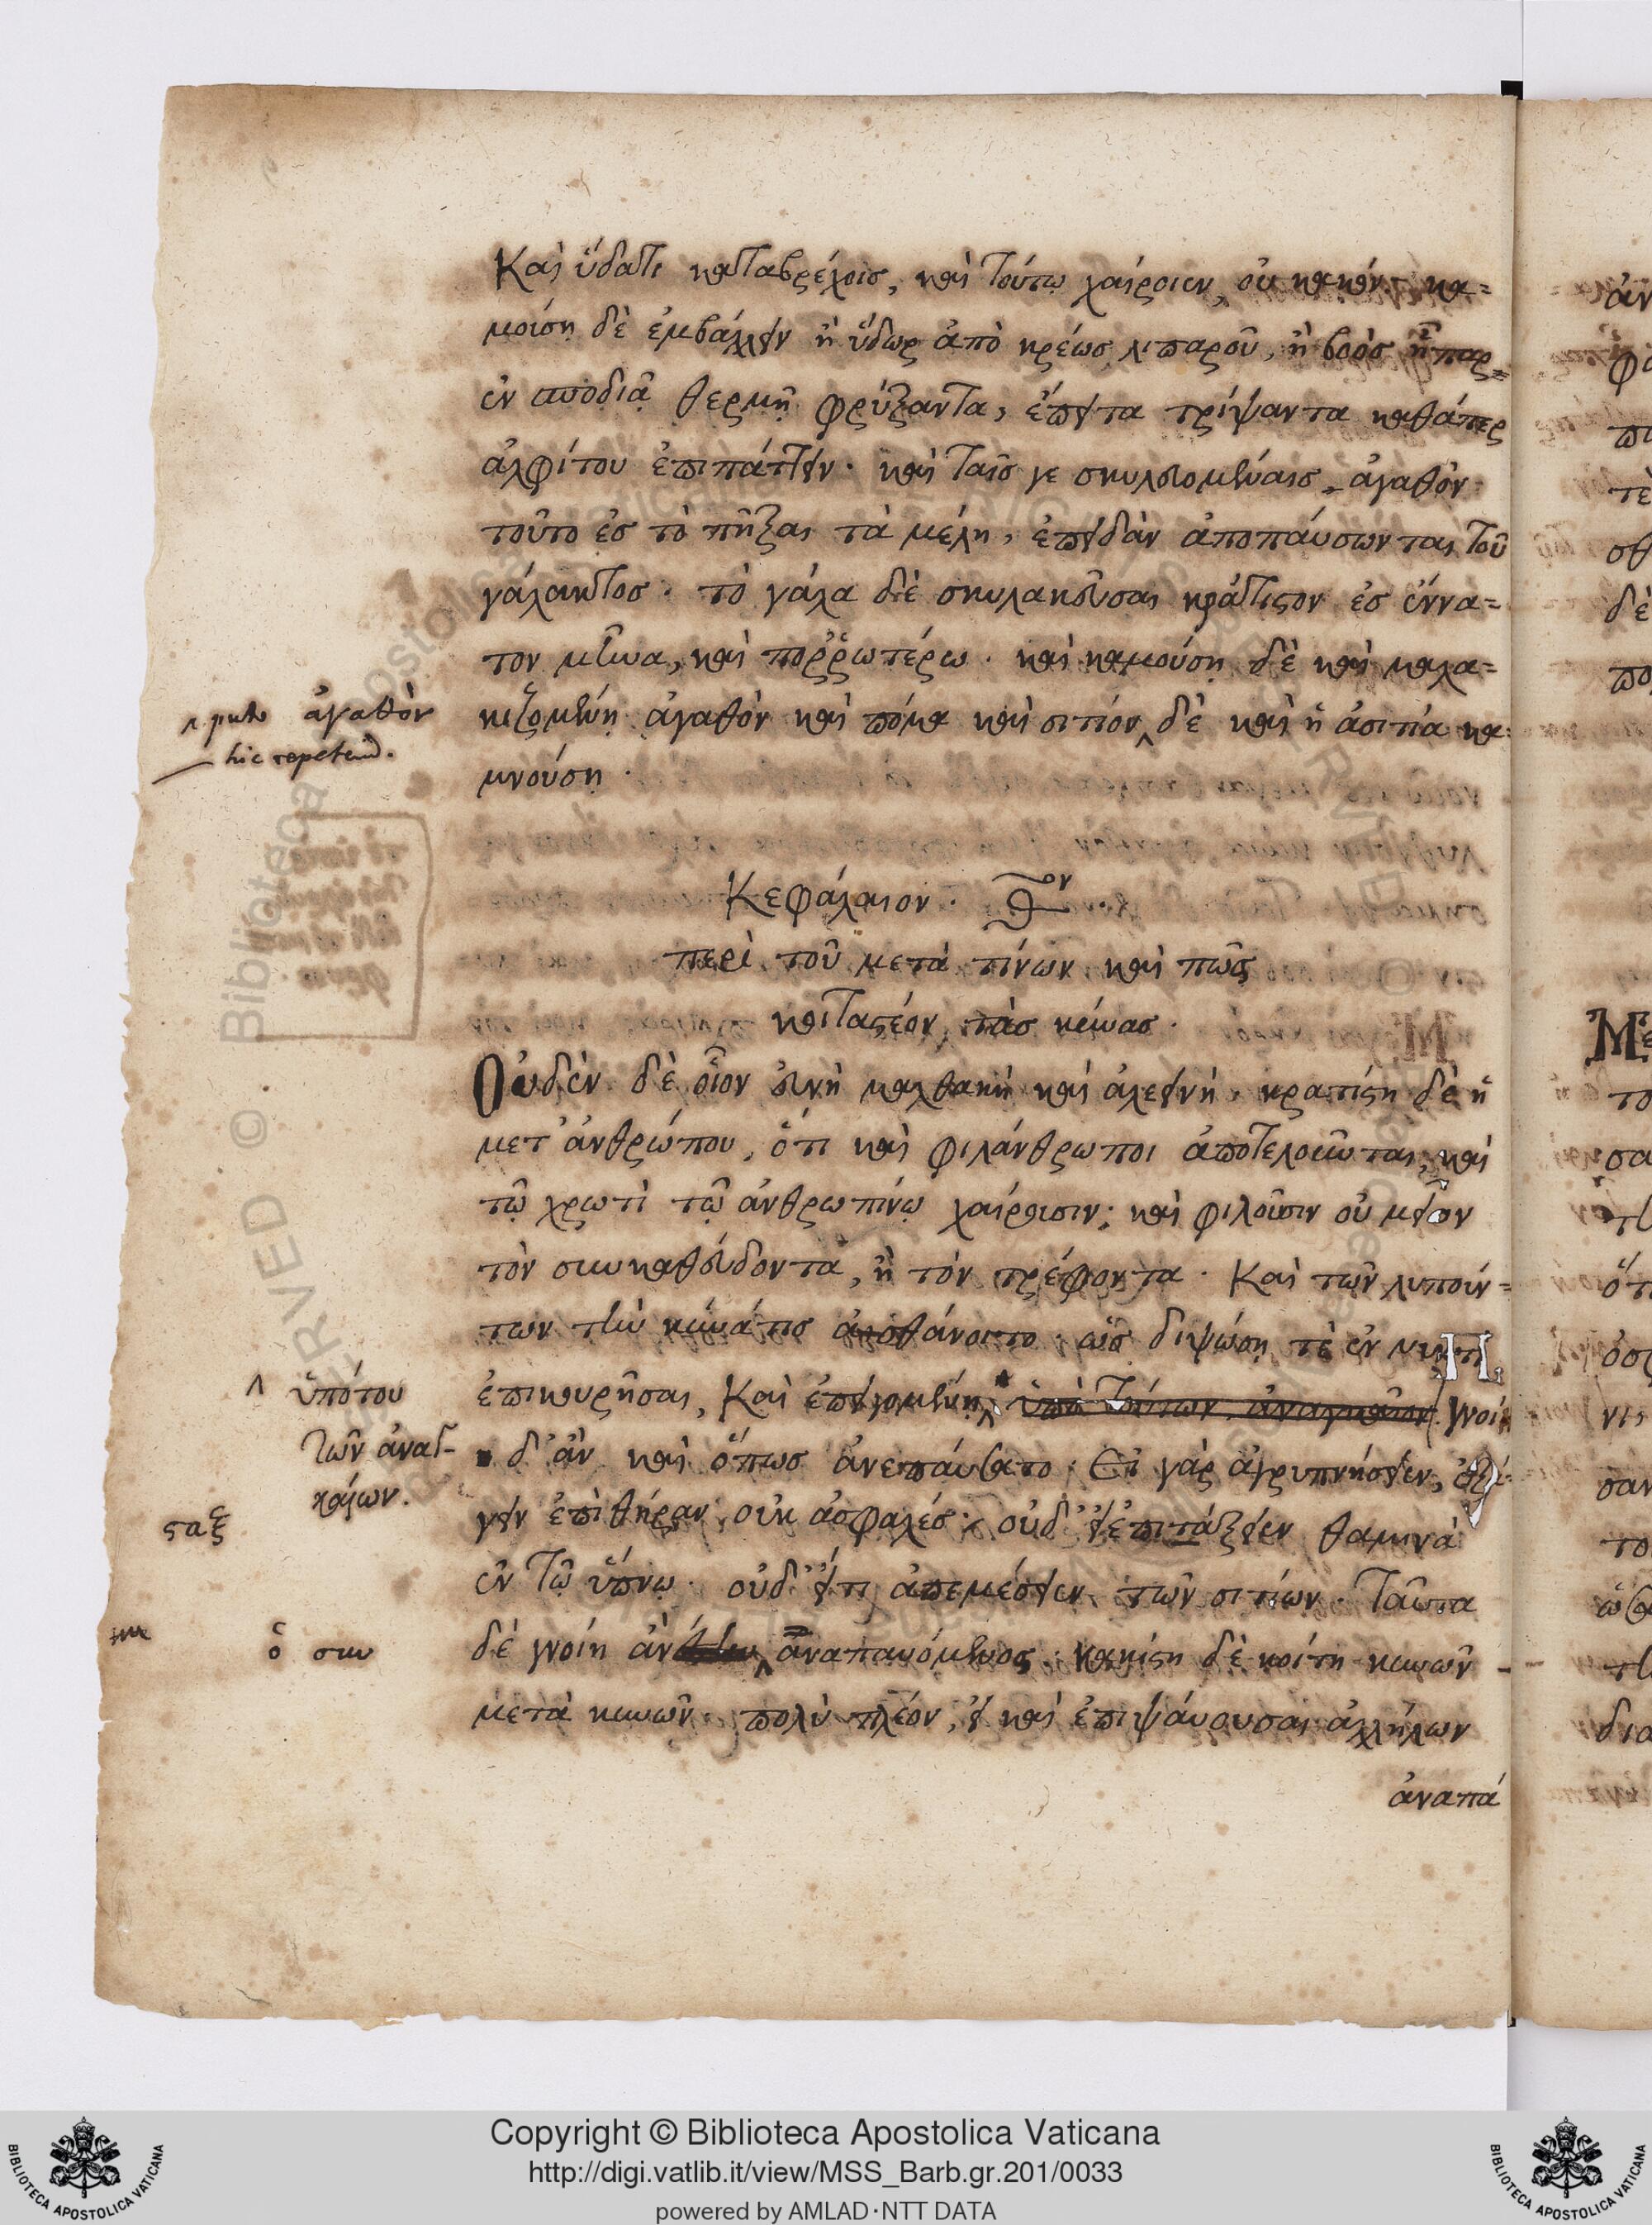 Καὶ ὕδατι καταβρέχοις, καὶ τούτῳ χαίροιεν, οὐ κακόν· κα=
μοίσῃ δὲ ἐμβάλλειν ἢ ὕδωρ ἀπὸ κρέως λιπαροῦ, ἢ βοὸς ἧπαρ
ἐν σποδιᾷ θερμῇ φρύξαντα, ἔπειτα τρίψαντα καθάπερ
ἀλφίτου ἐπιπάττειν. καὶ ταῖς γε σκυλευομέναις ἀγαθὸν
τοῦτο ἐς τὸ πῆξαι τὰ μέλη, ἐπειδὰν ἀποπαύσωνται τοῦ
γάλακτος. τὸ γάλα δὲ σκυλακούσαι κράτιστον ἐς ἔννα=
τον μῆνα, καὶ ποῤῥωτέρω. καὶ καμούσῃ δὲ καὶ μαλα=
κιζομένῃ ἀγαθὸν καὶ πόμα καὶ σιτίον ^ δὲ καὶ ἡ ἀσιτία κα
μνούσῃ.
^ puto ἀγαθὸν
hic repetend.
Κεφάλαιον. θον
περὶ τοῦ μετὰ τίνων καὶ πῶς
κοιταστέον τὰς κύνας.
Οὐδὲν δὲ οἷον εὐνὴ μαλθακὴ καὶ ἀλεεινή. κρατίστη δὲ ἡ
μετ' ἀνθρώπου, ὅτι καὶ φιλάνθρωποι ἀποτελοῦνται, καὶ
τῷ χρωτὶ τῷ ἀνθρωπίνῳ χαίρουσιν· καὶ φιλοῦσιν οὐ μεῖον
τὸν συγκαθεύδοντα, ἢ τὸν τρέφοντα. Καὶ τῶν λυποίν=
των τὴν κύνα τις αἰσθάνοιτο. ὡς διψώσῃ τὲ ἐν νυκτὶ
ἐπικουρῆσαι, Καὶ ἐπειγομένῃ ^ ὑπὸ τούτων ἀναγκαίων. γνοίη
^ ὑπό του
τῶν ἀναγ-
καίων.
δ' ἂν καὶ ὅπως ἀνεπαύσατο. Εἰ γὰρ ἀγρυπνήσειεν, ἐξά-
γειν ἐπὶ θήραν οὐκ ἀσφαλές· οὐδ' εἰ ἐπιτάξειεν θαμινὰ
σταξ
ἐν τῷ ὕπνῳ. οὐδ' εἴ τι ἀπεμέσειεν τῶν σιτίων. Ταῦτα
δὲ γνοίη ἂν ^ ἀναπαυόμενος. κακίστη δὲ κοίτη κυνῶν
ὁ συν
μετὰ κυνῶν. πολὺ πλέον, εἰ καὶ ἐπιψάυουσαι ἀλλήλων
ἀναπά
Copyright © Biblioteca Apostolica Vaticana
http://digi.vatlib.it/view/MSS_Barb.gr.201/0033
powered by AMLAD·NTT DATA
BIBLIOTECA APOSTOLICA VATICANA
BIBLIOTECA APOSTOLICA VATICANA